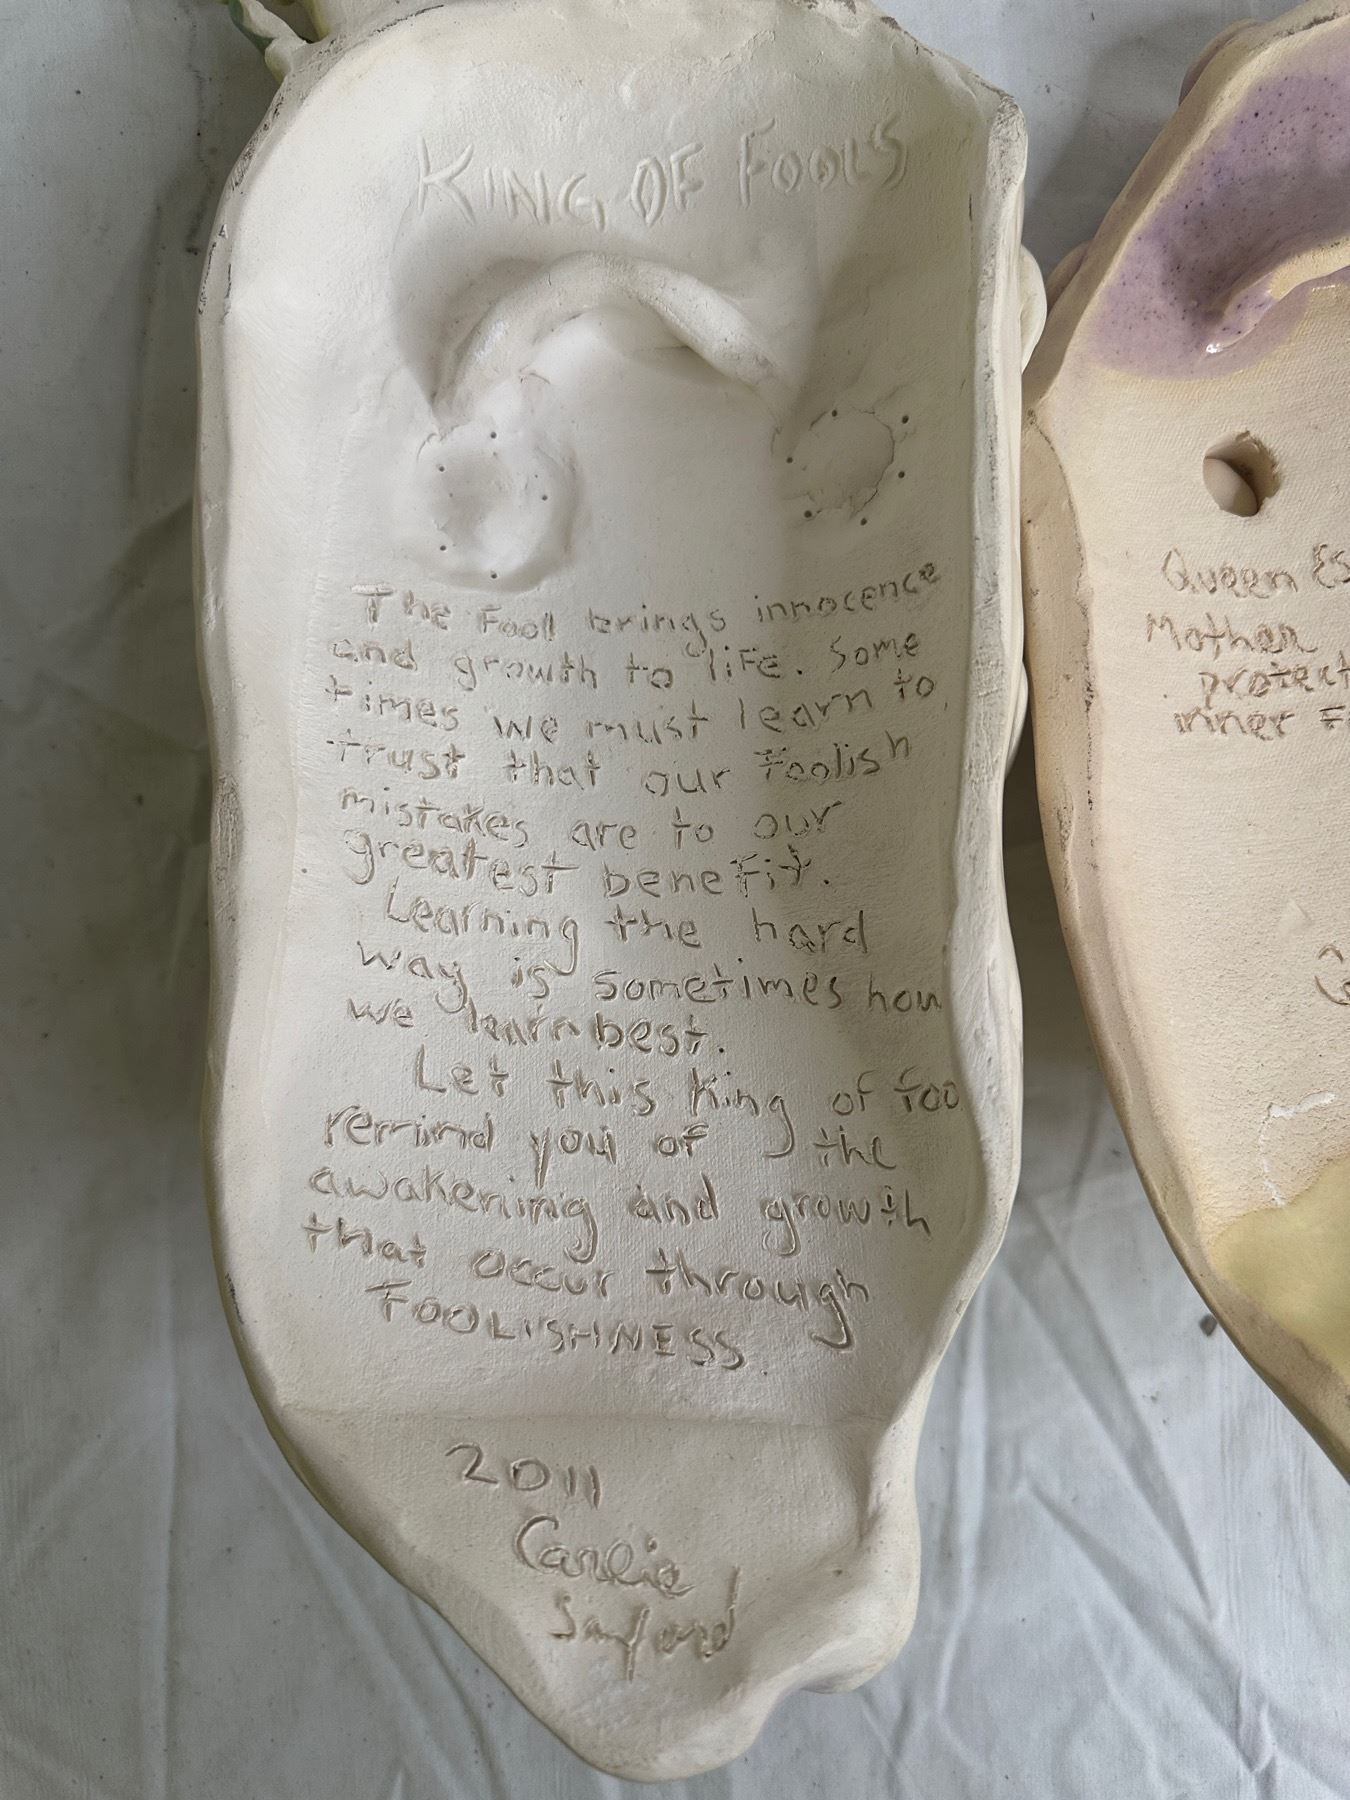 KING OF FOOLS
The Fool brings innocence
and growth to life. Some
times we must learn to
trust that our foolish
mistakes are to our
greatest benefit.
Learning the hard
way is sometimes how
we learn best.
Let this King of foo
remind you of the
awakening and growth
that occur through
FOOLISHNESS
2011
Carlie
Queen Es
Mother
protect
inner